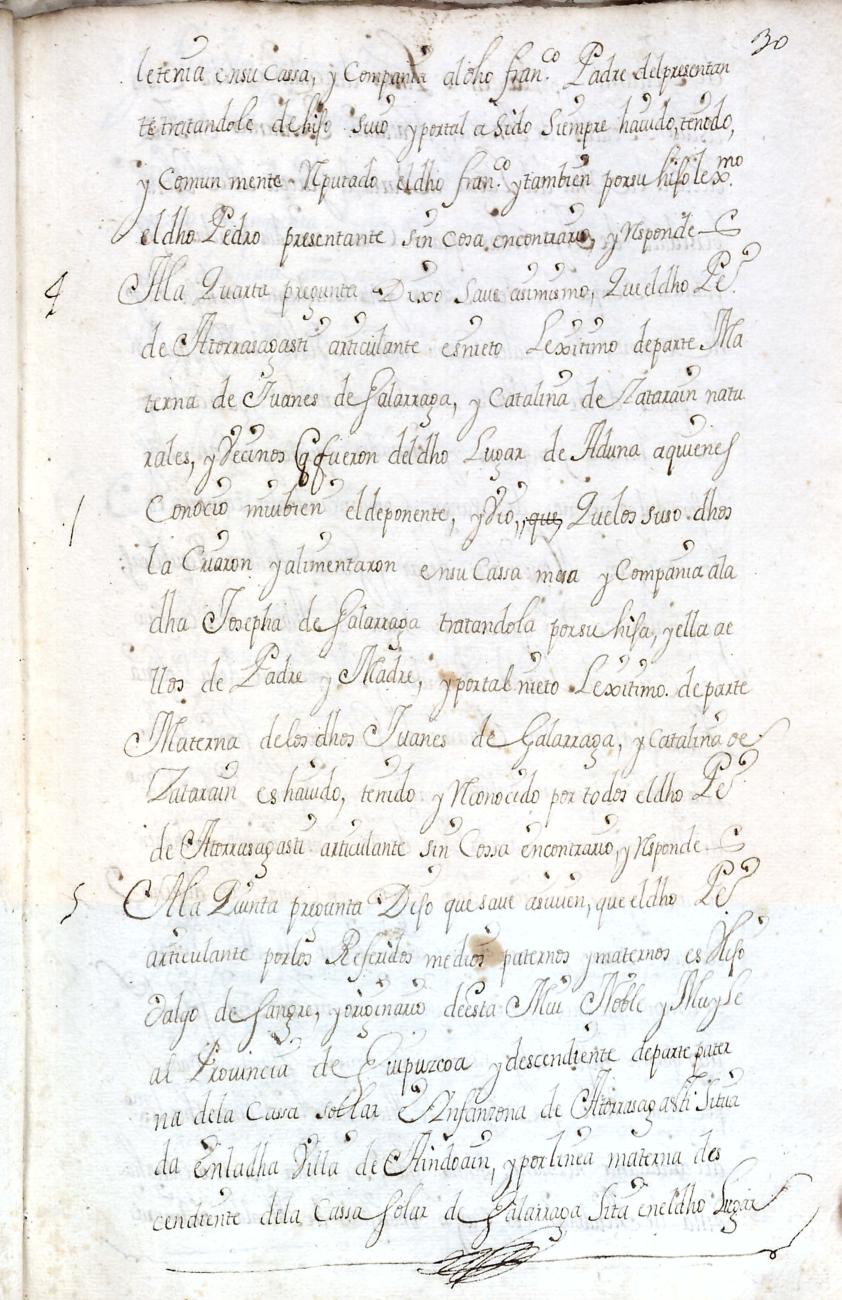 30
letenia ensu Cassa, y Compania aldho fran.co Padre delpresentan
te tratandole dehijo suio yportal a Sido Siempre havido, tenido,
y Comun mente Reputado eldho fran.co ytambien porsu hijo lex.mo
eldho Pedro presentante sin Cosa encontrario, y Responde
4 Ala Quarta pregunta Dixo Save asimismo, Que eldho Pe.
de Atorrasagasti articulante esnieto Lexitimo departe Ma
terna de Juanes de Galarraga, y Catalina de Zatarain natu
rales, y Vecinos q fueron deldho Lugar de Aduna aquienes
Conocio muibien eldeponente, yVio, que Quelos suso dhos
la Criaron yalimentaron ensu Cassa mesa y Compania ala
dha Josepha de Galarraga tratandola porsu hija, yella ae
llos de Padre y Madre, yportal nieto Lexitimo departe
Materna delos dhos Juanes de Galarraga, y Catalina de
Zatarain es havido, tenido y Reconocido por todos eldho Pe
de Atorrasagasti articulante sin Cossa encontrario, y Responde
5 Ala Quinta pregunta Dijo que save asivien, que eldho Pe
articulante porlos Referidos medios paternos y maternos es Hijo
dalgo de Sangre, yoriginario deesta Mui Noble y Muy Le
al Provincia de Guipuzcoa y descendiente departe pater
na dela Cassa sollar Infanzona de Atorrasagasti Situa
da enladha Villa de Aindoain, yporlinea materna des
cendiente dela Cassa Solar de Galarraga Sita eneldho Lugar